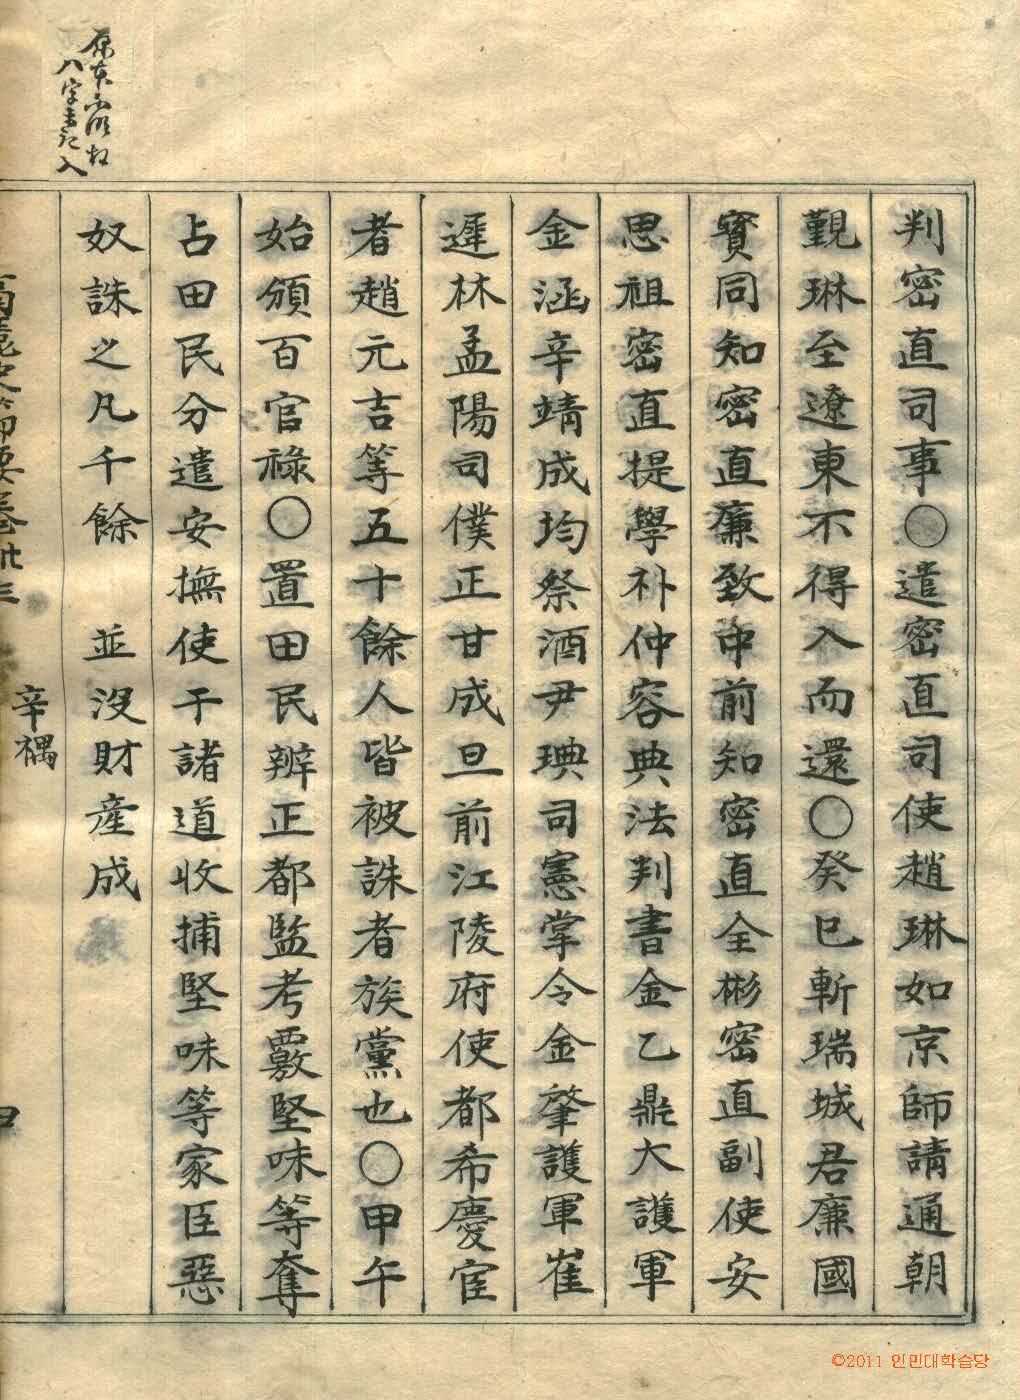 判密直司事○遣密直司使趙琳如京師請通朝
覲琳至遼東不得入而還○癸巳斬瑞城君廉國
寶同知密直廉致中前知密直全彬密直副使安
思祖密直提學朴仲容典法判書金乙鼎大護軍
金涵辛靖成均祭酒尹琠司憲掌令金肇護軍崔
遲林孟陽司僕正甘成旦前江陵府使都希慶宦
者趙元吉等五十餘人皆被誅者族黨也○甲午
始頒百官祿○置田民辨正都監考覈堅味等奪
占田民分遣安撫使于諸道收捕堅味等家臣惡
奴誅之凡千餘 並沒財産成
高麗史節要卷卅三
辛禑
四
八字未記入
©2011 인민대학습당